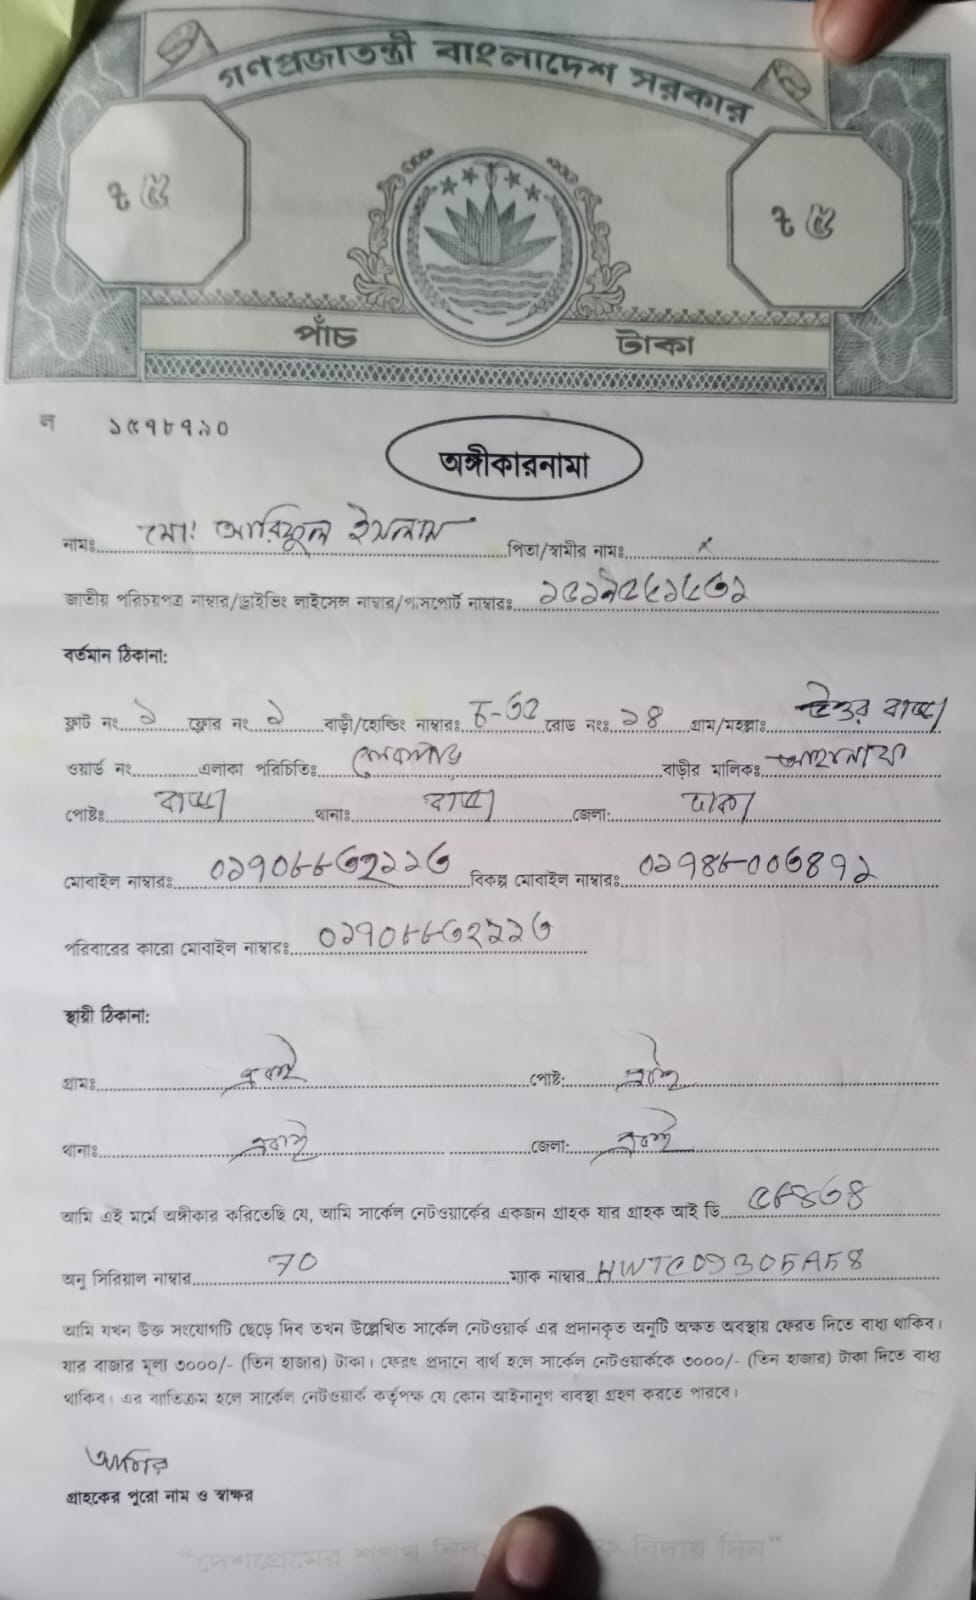 গণপ্রজাতন্ত্রী বাংলাদেশ সরকার
৳ ৫ ৳ ৫
পাঁচ টাকা
ল ১৫৭৮৭৯০
অঙ্গীকারনামা
নামঃ মো: আরিফুল ইসলাম পিতা/স্বামীর নামঃ x
জাতীয় পরিচয়পত্র নাম্বার/ড্রাইভিং লাইসেন্স নাম্বার/পাসপোর্ট নাম্বারঃ
বর্তমান ঠিকানা:
ফ্লাট নং ১ ফ্লোর নং ১ বাড়ী/হোল্ডিং নাম্বারঃ রোড নংঃ ১৪ গ্রাম/মহল্লাঃ উত্তর বাড্ডা
ওয়ার্ড নং এলাকা পরিচিতিঃ বাড়ীর মালিকঃ
পোষ্টঃ বাড্ডা থানাঃ বাড্ডা জেলা: ঢাকা
মোবাইল নাম্বারঃ ০১৭০৮৮৬৩২১১৩ বিকল্প মোবাইল নাম্বারঃ
পরিবারের কারো মোবাইল নাম্বারঃ
স্থায়ী ঠিকানা:
গ্রামঃ পোষ্ট:
থানাঃ জেলা:
আমি এই মর্মে অঙ্গীকার করিতেছি যে, আমি সার্কেল নেটওয়ার্কের একজন গ্রাহক যার গ্রাহক আই ডি ৫৮৪৩৪
অনু সিরিয়াল নাম্বার 70 ম্যাক নাম্বার HWTC09305A58
আমি যখন উক্ত সংযোগটি ছেড়ে দিব তখন উল্লেখিত সার্কেল নেটওয়ার্ক এর প্রদানকৃত অনুটি অক্ষত অবস্থায় ফেরত দিতে বাধ্য থাকিব।
যার বাজার মূল্য ৩০০০/- (তিন হাজার) টাকা। ফেরৎ প্রদানে ব্যর্থ হলে সার্কেল নেটওয়ার্ককে ৩০০০/- (তিন হাজার) টাকা দিতে বাধ্য
থাকিব। এর ব্যতিক্রম হলে সার্কেল নেটওয়ার্ক কর্তৃপক্ষ যে কোন আইনানুগ ব্যবস্থা গ্রহণ করতে পারবে।
গ্রাহকের পুরো নাম ও স্বাক্ষর
"দেশপ্রেমের শপথ নিন, বিদায় দিন"